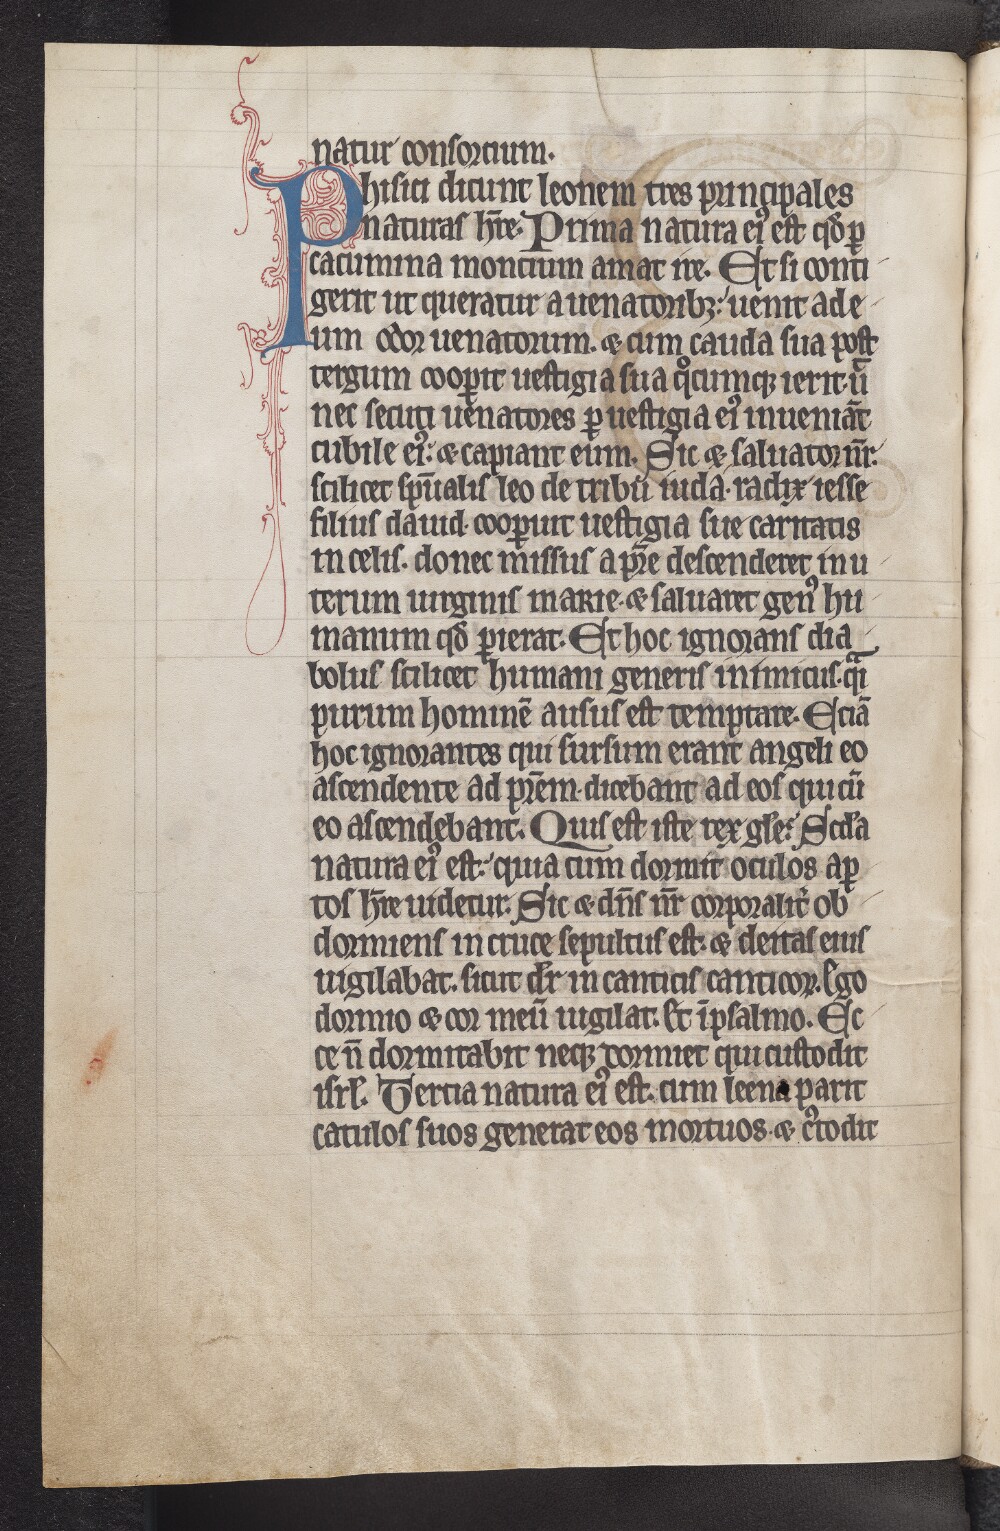 natur consorcium.
Phisici dicunt leonem tres principales
naturas hr̄e. Prima natura ei᷒ est qd̄ ꝑ
cacumina moncium amat ire. Et si conti
gerit ut queratur a uenatoribꝫ: uenit ad e
um odor uenatorum. ⁊ cum cauda sua post
tergum cooꝑit uestigia sua qͦcumqꝫ ierit. ut̄
nec secuti uenatores ꝑ uestigia ei᷒ inueniāt
cubile ei᷒: ⁊ capiant eum. Sic ⁊ saluator nr̄.
scilicet sp̄ualis leo de tribu iuda. radix iesse
filius dauid. cooꝑuit uestigia sue caritatis
in celis. donec missus a pr̄e descenderet in u
terum uirginis marie. ⁊ saluaret gen᷒ hu
manum qd̄ ꝑierat. Et hoc ignorans dia
bolus scilicet humani generis inimicus. qͣi
purum hominē ausus est temptare. Eciā
hoc ignorantes qui sursum erant angeli eo
ascendente ad pr̄em. dicebant ad eos qui cū
eo ascendebant. Quis est iste rex gl̄e: Scd̄a
natura ei᷒ est: quia cum dormit oculos aꝑ
tos hr̄e uidetur. Sic ⁊ dn̄s nr̄ corporalit̄ ob
dormiens in cruce sepultus est. ⁊ deitas eius
uigilabat. sicut dr̄ in canticis canticoꝝ. Ego
dormio ⁊ cor meū uigilat. Et ī psalmo. Ec
ce n̄ dormitabit neqꝫ dormiet qui custodit
isrl̄. Tercia natura ei᷒ est. cum leena parit
catulos suos generat eos mortuos. ⁊ c᷒todit